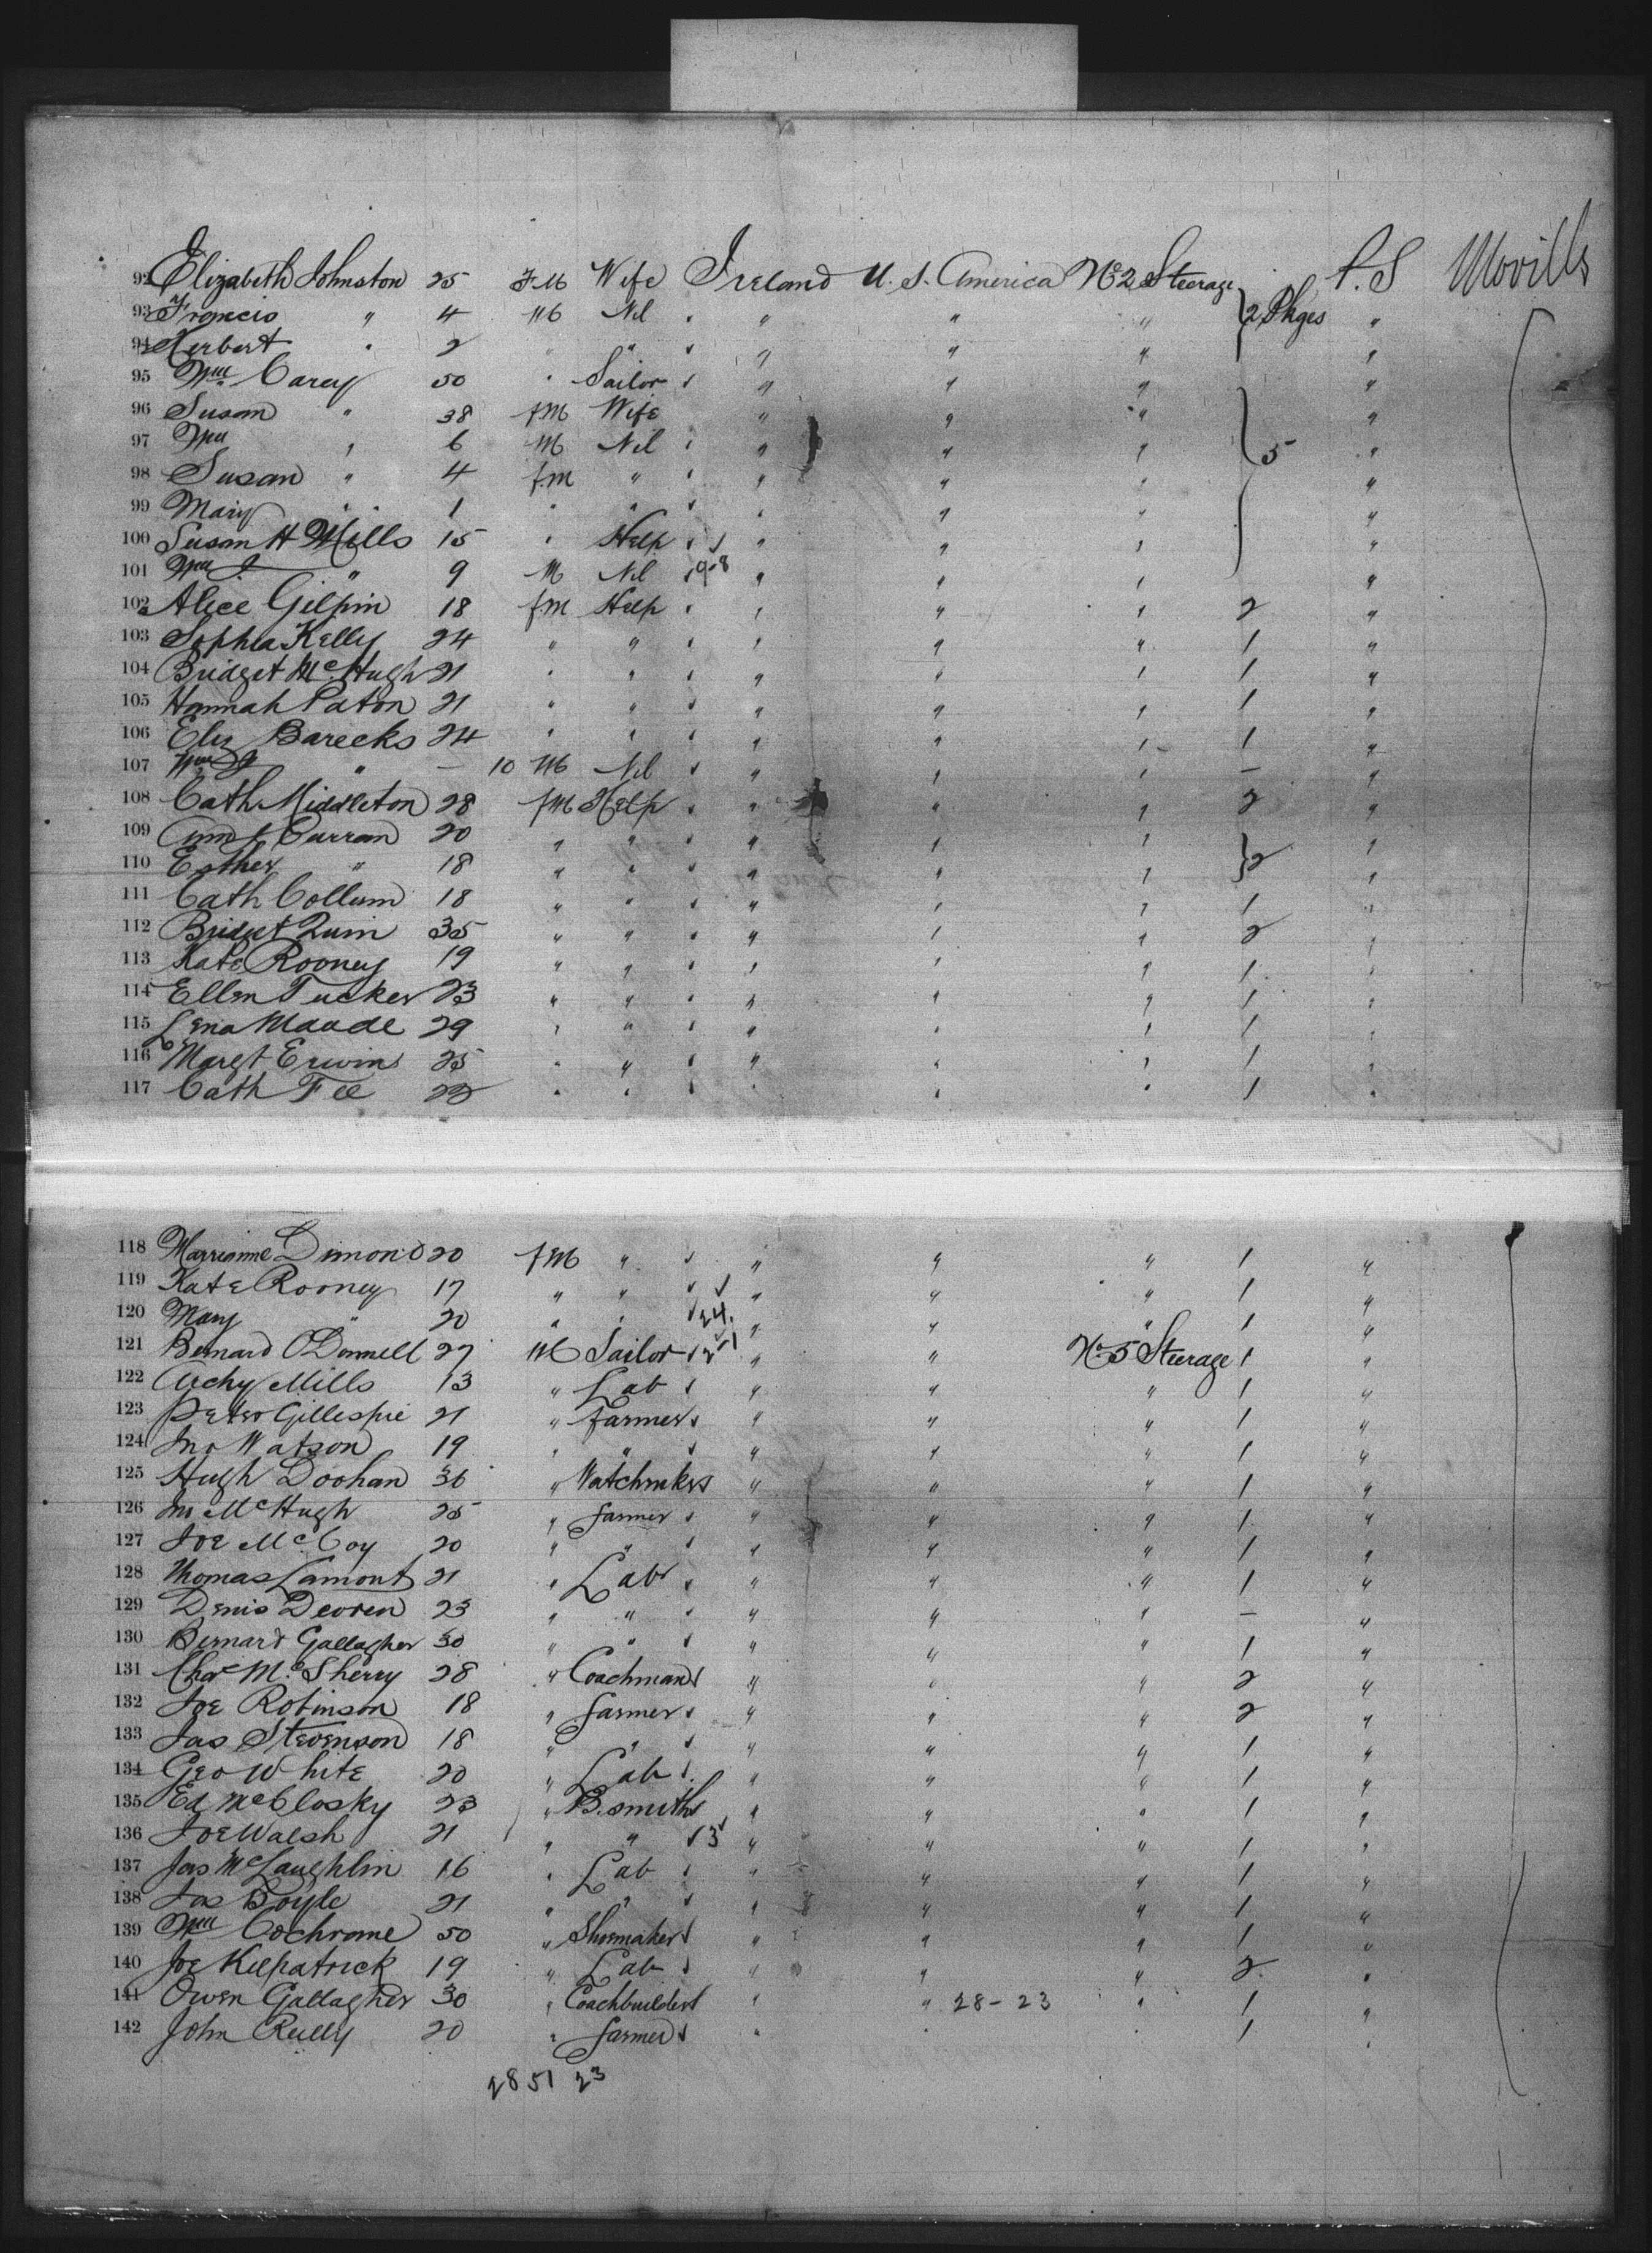 92 Elizabeth Johnston 25 F.M Wife Ireland U.S. America No 2 Steerage P.S Moville
93 Francis " 4 M Nil " " " 2 Pkges "
94 Herbert " 2 " " " " " "
95 Wm Carey 50 " Sailor " " " "
96 Susan " 38 fM Wife " " " "
97 Wm " 6 M Nil " " " 5 "
98 Susan " 4 fm " " " " "
99 Mary " 1 " " " " " "
100 Susan H Mills 15 " Help " " " "
101 Wm J " 9 M Nil 9-8 " " " "
102 Alice Gilpin 18 fm Help " " " 2 "
103 Sophia Kelly 24 " " " " " 1 "
104 Bridget McHugh 21 " " " " " 1 "
105 Hannah Paton 21 " " " " " 1 "
106 Eliz Barecks 24 " " " " " 1 "
107 Wm J " — 10 M Nil " " " — "
108 Cath Middleton 28 fM Help " " " 2 "
109 Curran 20 " " " " " "
110 Esther " 18 " " " " " 2 "
111 Cath Collum 18 " " " " " 1 "
112 Bridget Quin 35 " " " " " 2 "
113 Kate Rooney 19 " " " " " 1 "
114 Ellen Tucker 23 " " " " " 1 "
115 Lena Maude 29 " " " " " 1 "
116 Margt Erwin 25 " " " " " 1 "
117 Cath Fee 22 " " " " " 1 "
118 Marrianne Dimond 20 fM " " " " 1 "
119 Kate Rooney 17 " " " " " 1 "
120 Mary " 20 " " 24 " " " 1 "
121 Bernard O'Donnell 27 M Sailor 21 " " No 5 Steerage 1 "
122 Archy Mills 13 " Lab " " " 1 "
123 Peter Gillespie 21 " farmer " " " 1 "
124 Jno Watson 19 " " " " " 1 "
125 Hugh Doohan 36 " Watchmker " " " 1 "
126 Jno McHugh 25 " farmer " " " 1 "
127 Joe McCoy 20 " " " " " 1 "
128 Thomas Lamont 21 " Lab " " " 1 "
129 Denis Devren 23 " " " " " — "
130 Bernard Gallagher 30 " " " " " 1 "
131 Chas McSherry 28 " Coachman " " " 2 "
132 Joe Robinson 18 " farmer " " " 2 "
133 Jas Stevenson 18 " " " " " 1 "
134 Geo White 20 " Lab " " " 1 "
135 Ed McClosky 23 " B.smith " " " 1 "
136 Joe Walsh 21 " " 3 " " " 1 "
137 Jas McLaughlin 16 " Lab " " " 1 "
138 Jas Boyle 21 " " " " " 1 "
139 Wm Cochrane 50 " Shoemaker " " " 1 "
140 Joe Kilpatrick 19 " Lab " " " 2 "
141 Owen Gallagher 30 " Coachbuilder " " 28-23 " 1 "
142 John Reilly 20 " farmer " " " 1 "
28 51 23